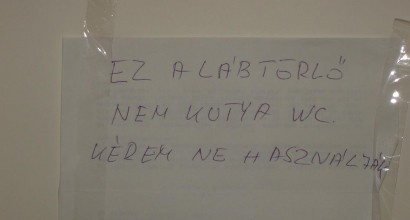 EZ A LÁBTÖRLŐ
NEM KUTYA WC.
KÉREM NE HASZNÁLJÁK